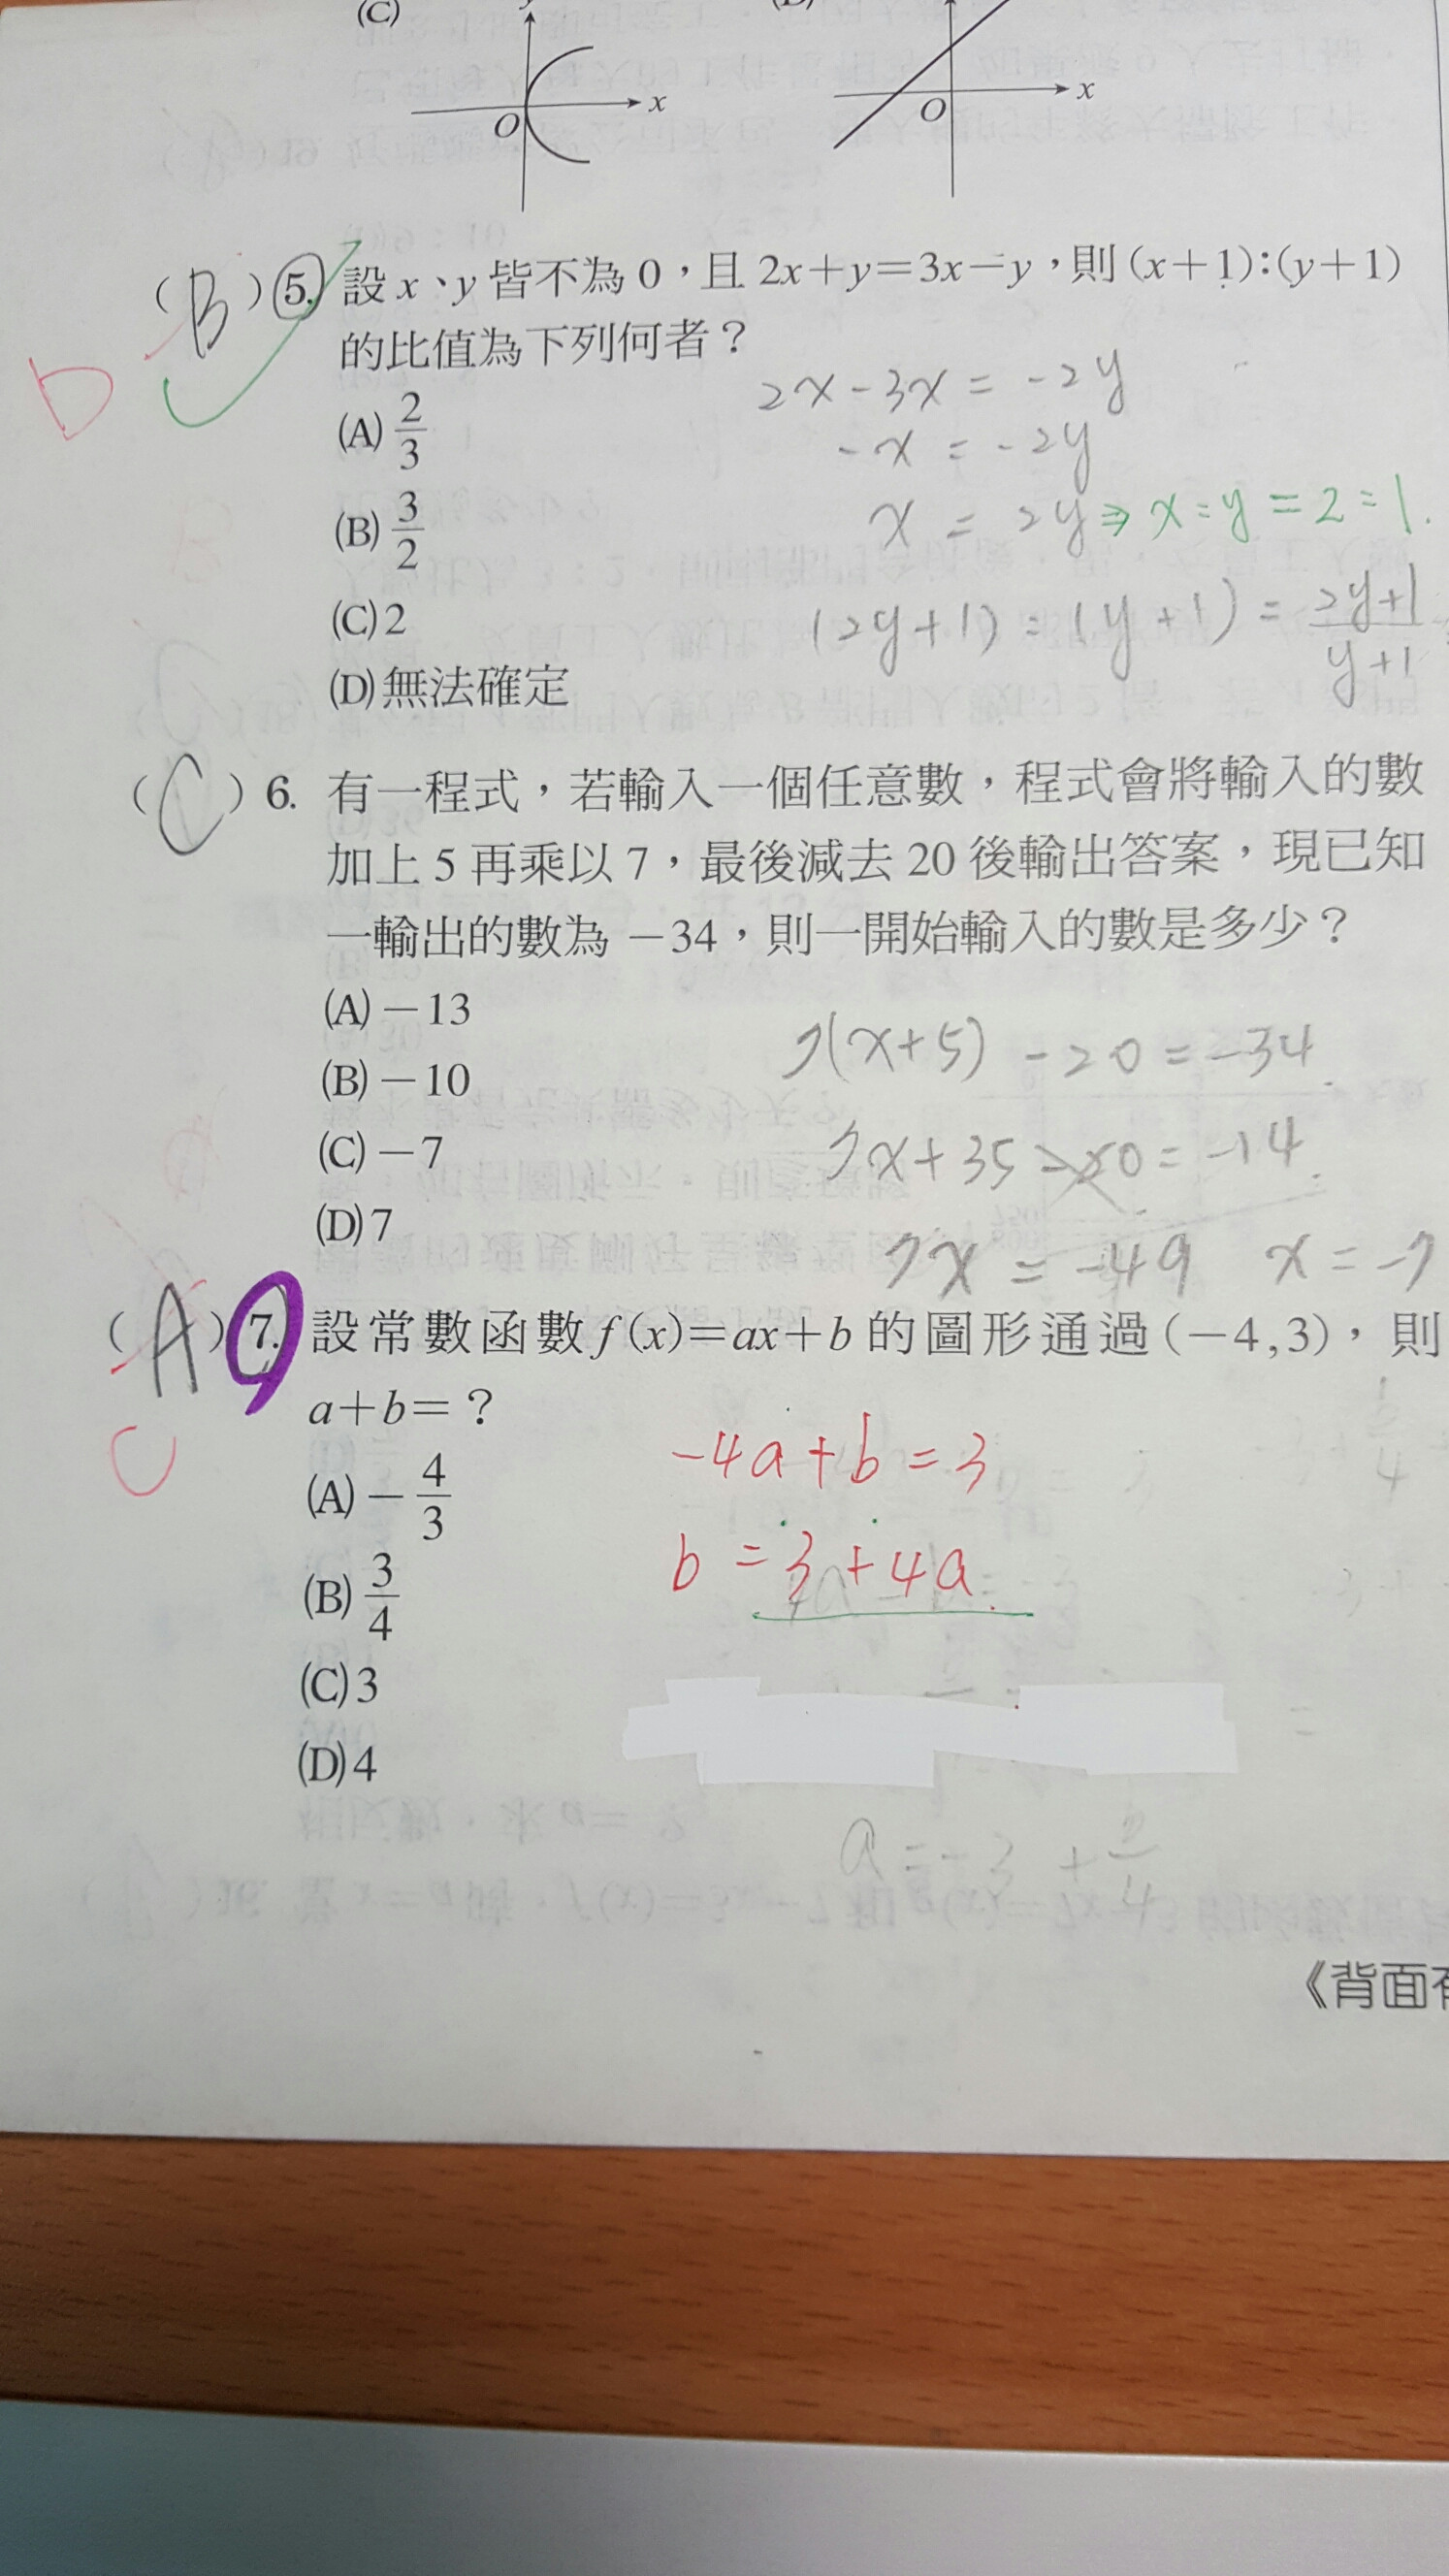 (C)
x
O
x
O
(B)5. 設 x、y 皆不為 0，且 2x+y=3x−y，則 (x+1):(y+1)
的比值為下列何者？
D
2x-3x = -2y
(A) 2/3
-x = -2y
(B) 3/2
x = 2y ⇒ x:y = 2:1.
(C) 2
(2y+1):(y+1) = 2y+1/y+1
(D) 無法確定
(C)6. 有一程式，若輸入一個任意數，程式會將輸入的數
加上 5 再乘以 7，最後減去 20 後輸出答案，現已知
一輸出的數為 −34，則一開始輸入的數是多少？
(A) −13
7(x+5) -20 = -34
(B) −10
(C) −7
7x+35-20 = -14
(D) 7
7x = -49 x = -7
(A)7. 設常數函數 f(x)=ax+b 的圖形通過 (−4,3)，則
a+b=？
C
-4a+b=3
(A) −4/3
b = 3+4a
(B) 3/4
(C) 3
(D) 4
《背面